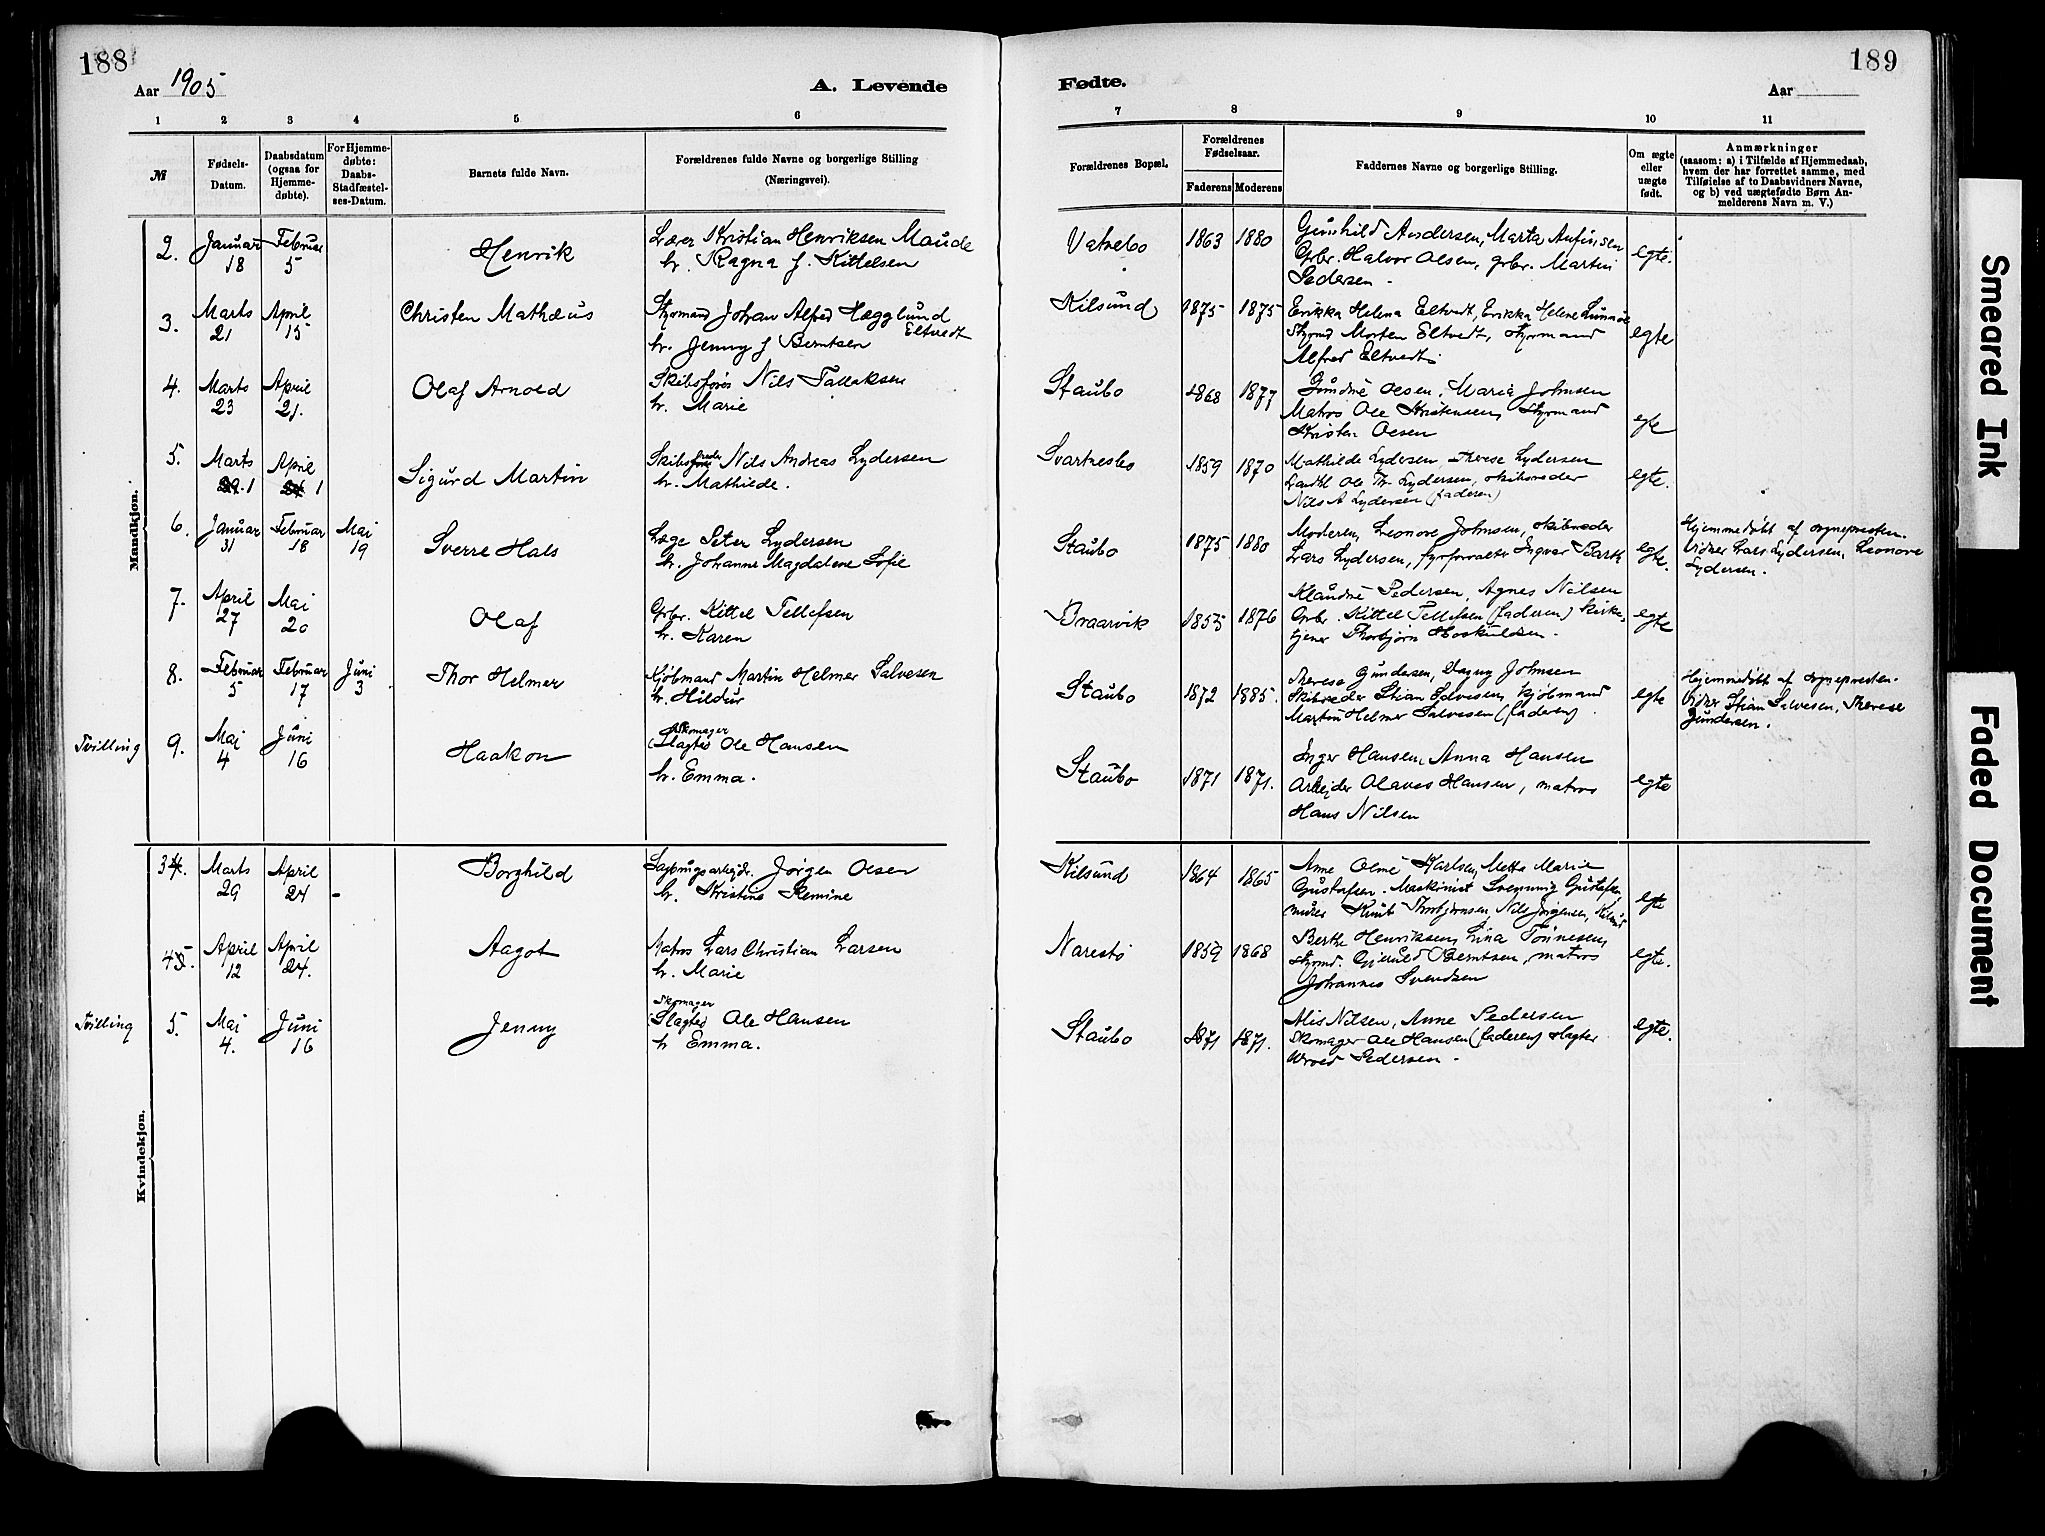 188
Aar 1905
A. Levende
1 2 3 4 5 6
№
Fødsels-Datum.
Daabsdatum (ogsaa for Hjemmedøbte).
For Hjemmedøbte: Daabs-Stadfæstelses-Datum.
Barnets fulde Navn.
Forældrenes fulde Navne og borgerlige Stilling (Næringsvei).
Mandkjøn.
2. Januar 18 Februar 5 Henrik
Lærer Kristian Henriksen Maude
h. Ragna f. Kittelsen
3. Marts 21 April 15 Christen Mathæus
Styrmand Johan Alfred Hægglund Eltvedt
h. Jenny f Berntsen
4. Marts 23 April 21. Olaf Arnold
Skibsfører Nils Tallaksen
h. Marie
5. Marts 1 April 1 Sigurd Martin
Skibsreder Nils Andreas Lydersen
h. Mathilde.
6. Januar 31 Februar 18 Mai 19 Sverre Hals
Læge Peter Lydersen
h. Johanne Magdalene Sofie
7. April 27 Mai 20 Olaf
Grbr. Kittel Tellefsen
h. Karen
8. Februar 5 Februar 17 Juni 3 Thor Helmer
Kjøbmand Martin Helmer Salvesen
h. Hildur
Tvilling 9. Mai 4 Juni 16 Haakon
Skomager
Slagter Ole Hansen
h. Emma.
Kvindekjøn.
3. Marts 29 April 24 - Borghild
Sagbrugsarbejdr. Jørgen Olsen
h. Kristine Remine
4. April 12 April 24. Aagot
Matros Lars Christian Larsen
h. Marie
Tvilling 5. Mai 4. Juni 16 Jenny
Skomager
Slagter Ole Hansen
h Emma.
189
Fødte.
Aar
7 8 9 10 11
Forældrenes Bopæl.
Forældrenes Fødselsaar.
Faderens Moderens
Faddernes Navne og borgerlige Stilling.
Om ægte eller uægte født.
Anmærkninger
(saasom: a) i Tilfælde af Hjemmedaab,
hvem der har forrettet samme, med
Tilføielse af to Daabsvidners Navne,
og b) ved uægtefødte Børn Anmelderens Navn m. V.)
Vatnebo 1863 1880
Gunhild Andersen, Marta Anfinsen
Grbr. Halvor Olsen, grbr. Martin
Pedersen -
egte.
Kilsund 1875 1875
Erikka Helena Eltvedt, Erikka Helene
Styrmd Morten Eltvedt, styrmand
Alfred Eltvedt.
egte
Staubo 1868 1877
Gundine Olsen, Marie Johnsen
Matros Ole Kristensen, Styrmand
Kristen Olsen
egte
Svartnesbo 1859 1870
Mathilde Lydersen, Therese Lydersen
Ole Th. Lydersen, skibsreder
Nils A Lydersen (faderen)
egte.
Staubo 1875 1880
Moderen, Leonore Johnsen, skibsreder
Lars Lydersen, fyrforvalter Ingvar Bark
egte.
Hjemmedøbt af sognepresten.
Vidner Lars Lydersen, Leonore
Lydersen.
Braarvik 1855 1876
Klaudine Pedersen, Agnes Nilsen
Grbr. Kittel Tellefsen (faderen) kirke-
tjener Thorbjørn Hoskuldsen -
egte
Staubo 1872 1885.
Therese Gundersen, Dagny Johnsen
Skibsreder Stian Salvesen, kjøbmand
Martin Helmer Salvesen (faderen)
egte
Hjemmedøbt af sognepresten.
Vidner Stian Salvesen, Therese
Gundersen.
Staubo 1871 1871.
Inger Hansen, Anna Hansen
Arbejder Olaves Hansen, matros
Hans Nilsen
egte
Kilsund 1864 1865
Anne Oline Karlsen, Metta Marie
Gustafsen. Maskinist Svennung Gustafsen
murer Knut Thorbjørnsen, Nils Jørgensen,
egte
Narestø 1859 1868
Berthe Henriksen, Lina Tønnesen,
styrmd. Gjeruld Berntsen, matros
Johannes Svendsen
egte.
Staubo 1871 1871.
Alis Nilsen, Anne Pedersen
Skomager Ole Hansen (faderen) slagter
Pedersen -
egte.
Smeared Ink
Faded Document